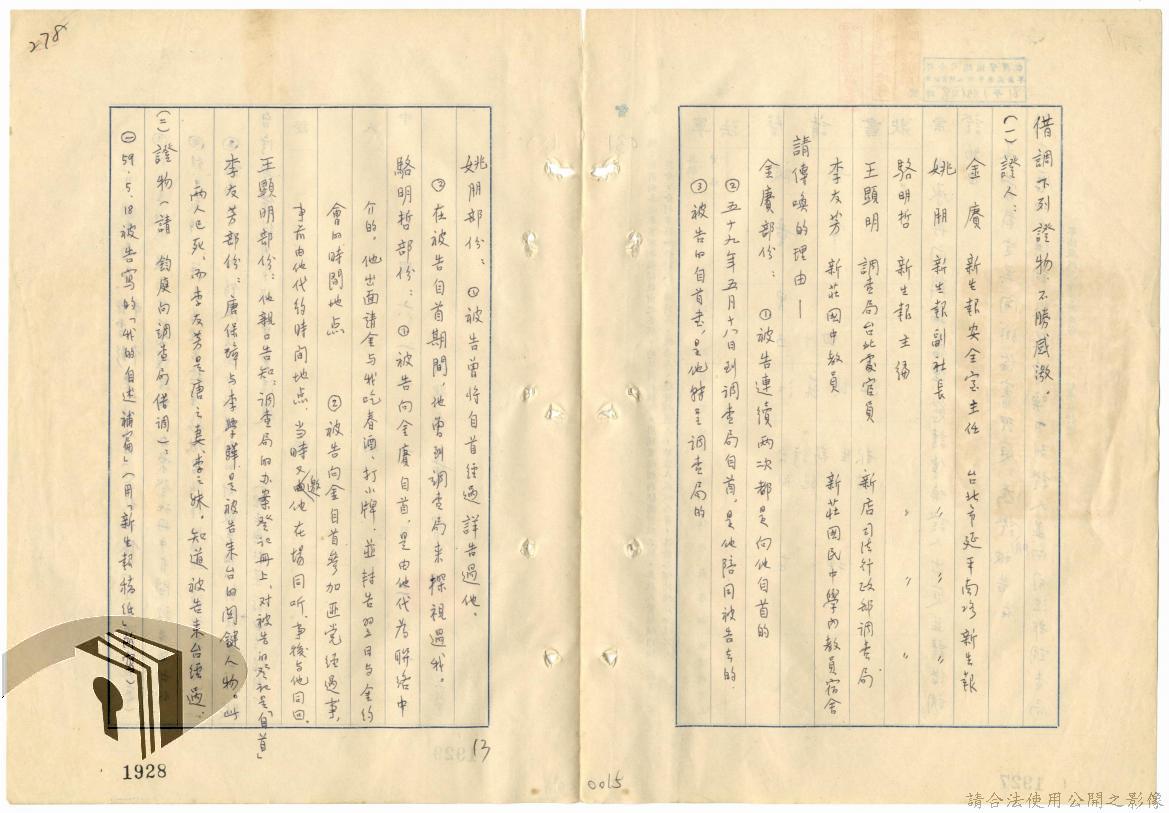 借調下列證物,不勝感激。
(一)證人:
金賡 新生報安全室主任 台北市延平南路新生報
姚朋 新生報副社長 〃 〃 〃
駱明哲 新生報主編 〃 〃 〃
王顯明 調查局台北處官員 新店司法行政部調查局
李友芳 新莊國中教員 新莊國民中學內教員宿舍
請傳喚的理由——
金賡部份: ①被告連續兩次都是向他自首的
②五十九年五月十八日到調查局自首,是他陪同被告去的。
③被告的自首書,是他轉呈調查局的
姚朋部份: ①被告曾將自首經過詳告過他。
②在被告自首期間,他曾到調查局來探視過我。
駱明哲部份: ①被告向金賡自首,是由他代為聯絡中
介的。他出面請金與我吃春酒、打小牌,並轉告翌日與金約
會的時間地點 ②被告向金自首參加匪党經過事,
事前由他代約時間地點,當時又邀他在場同听,事後與他同回。
王顯明部份:他親口告知:調查局的办案登記冊上,对被告的登記是「自首」
李友芳部份:唐保璋與李學驊是被告來台的関鍵人物。此
兩人已死,而李友芳是唐之妻、李之妹,知道被告來台經過。
(二)證物(請 鈞庭向調查局借調)、
㊀59.5.18被告寫的「我的自述補篇」(用「新生報稿紙」
278
1928
13
0015
請合法使用公開之影像